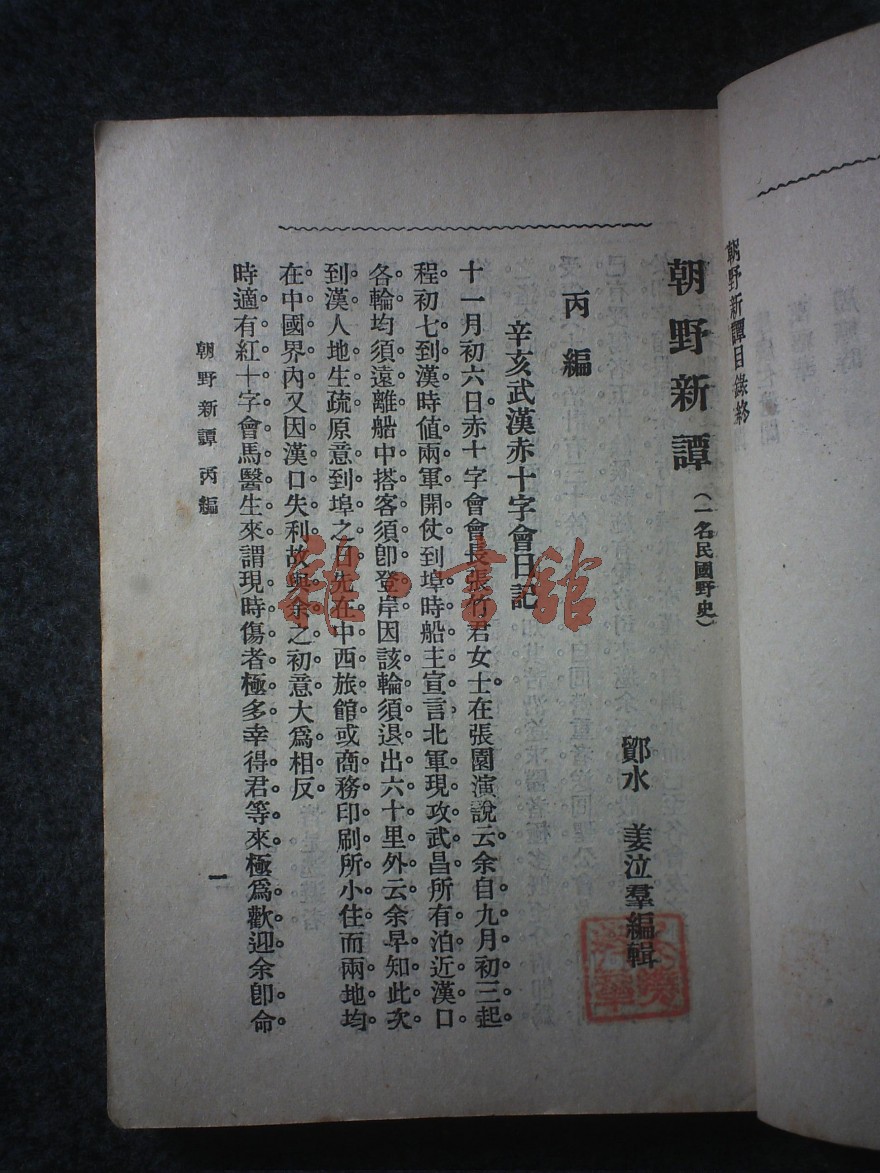 朝野新譚目錄終
朝野新譚（一名民國野史）
鄮水 姜泣羣編輯
丙編
辛亥武漢赤十字會日記
十一月初六日赤十字會會長張竹君女士在張園演說云余自九月初三起
程初七到漢時值兩軍開仗到埠時船主宣言北軍現攻武昌所有泊近漢口
各輪均須遠離船中搭客須卽登岸因該輪須退出六十里外云余早知此次
到漢人地生疏原意到埠之日先在中西旅館或商務印刷所小住而兩地均
在中國界內又因漢口失利故與余之初意大爲相反
時適有紅十字會馬醫生來謂現時傷者極多幸得君等來極爲歡迎余卽命
朝野新譚 丙編
一
雜·書館